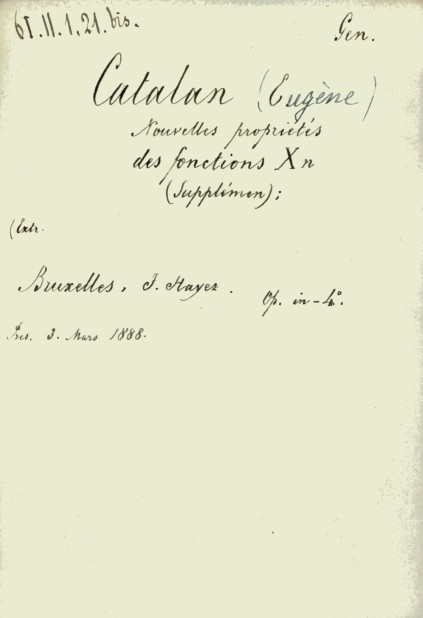 61.11.1.21.bis.
Gen.
Catalan (Eugène)
Nouvelles propriétés
des fonctions Xn
(Supplémen);
(Extr.
Bruxelles, F. Hayez.
Op. in-4º.
Pres. 3. Mars 1888.